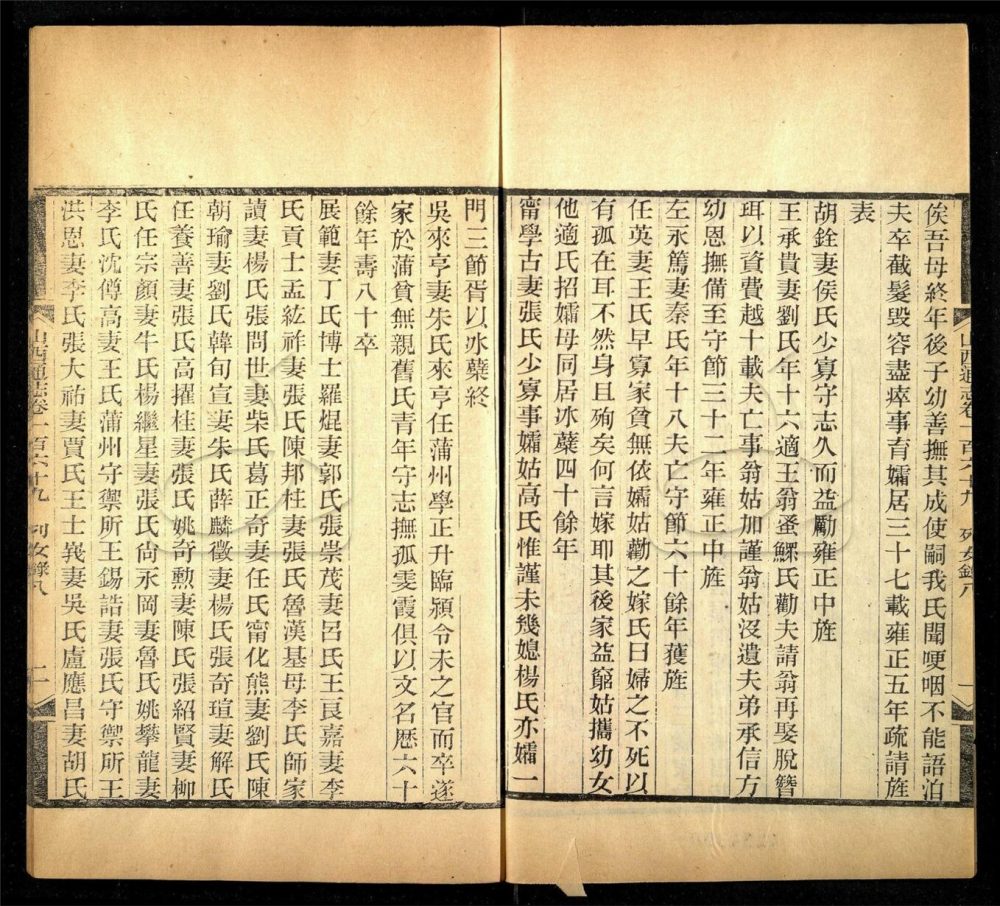 山西通志卷一百六十九 列女錄八 一
俟吾母終年後子幼善撫其成使嗣我氏聞哽咽不能語洎
夫卒截髮毀容盡瘁事育孀居三十七載雍正五年疏請旌
表
胡銓妻侯氏少寡守志久而益勵雍正中旌
王承貴妻劉氏年十六適王翁蚤鰥氏勸夫請翁再娶脫簪
珥以資費越十載夫亡事翁姑加謹翁姑沒遺夫弟承信方
幼恩撫備至守節三十二年雍正中旌
左永篤妻秦氏年十八夫亡守節六十餘年獲旌
任英妻王氏早寡家貧無依孀姑勸之嫁氏曰婦之不死以
有孤在耳不然身且殉矣何言嫁耶其後家益窮姑攜幼女
他適氏招孀母同居冰蘗四十餘年
甯學古妻張氏少寡事孀姑高氏惟謹未幾媳楊氏亦孀一
門三節胥以冰蘗終
吳來亨妻朱氏來亨任蒲州學正升臨潁令未之官而卒遂
家於蒲貧無親舊氏青年守志撫孤雯霞俱以文名歷六十
餘年壽八十卒
展範妻丁氏博士羅焜妻郭氏張崇茂妻呂氏王良嘉妻李
氏貢士孟紘祚妻張氏陳邦柱妻張氏魯漢基母李氏師家
讀妻楊氏張問世妻柴氏葛正奇妻任氏甯化熊妻劉氏陳
朝瑜妻劉氏韓旬宣妻朱氏薛麟徵妻楊氏張奇瑄妻解氏
任養善妻張氏高擢桂妻張氏姚奇勲妻陳氏張紹賢妻柳
氏任宗顏妻牛氏楊繼星妻張氏尙永岡妻魯氏姚攀龍妻
李氏沈傅高妻王氏蒲州守禦所王錫誥妻張氏守禦所王
洪恩妻李氏張大祐妻賈氏王士㠭妻吳氏盧應昌妻胡氏
山西通志卷一百六十九 列女錄八 二